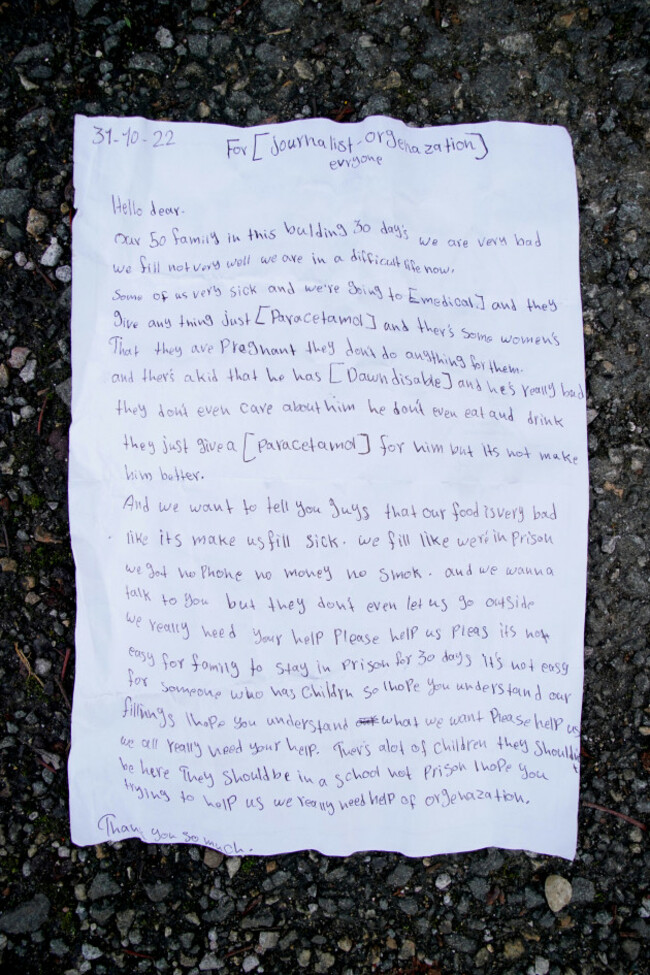 31-10-22
For [journalist-orgenazation]
evryone
Hello dear.
our 50 family in this bullding 30 day's we are very bad
we fill not very well we are in a difficult life now.
Some of us very sick and we're going to [medical] and they
give any thing just [Paracetamol] and ther's some women's
That they are Pregnant they don't do anything for them.
and ther's a kid that he has [Dawn disable] and he's really bad
they don't even care about him he don't even eat and drink
they just give a [paracetamol] for him but its not make
him better.
And we want to tell you guys that our food is very bad
like its make us fill sick. we fill like we're in prison
we got no Phone no money no smok. and we wanna
talk to you but they don't even let us go outside
we really need your help Please help us Pleas its not
easy for family to stay in prison for 30 days it's not easy
for someone who has Childrn so I hope you understand our
fillings I hope you understand what we want Please help us
we all really need your help. Ther's alot of children they should't
be here They should be in a school not Prison I hope you
trying to help us we really need help of orgenazation.
Than you so much.